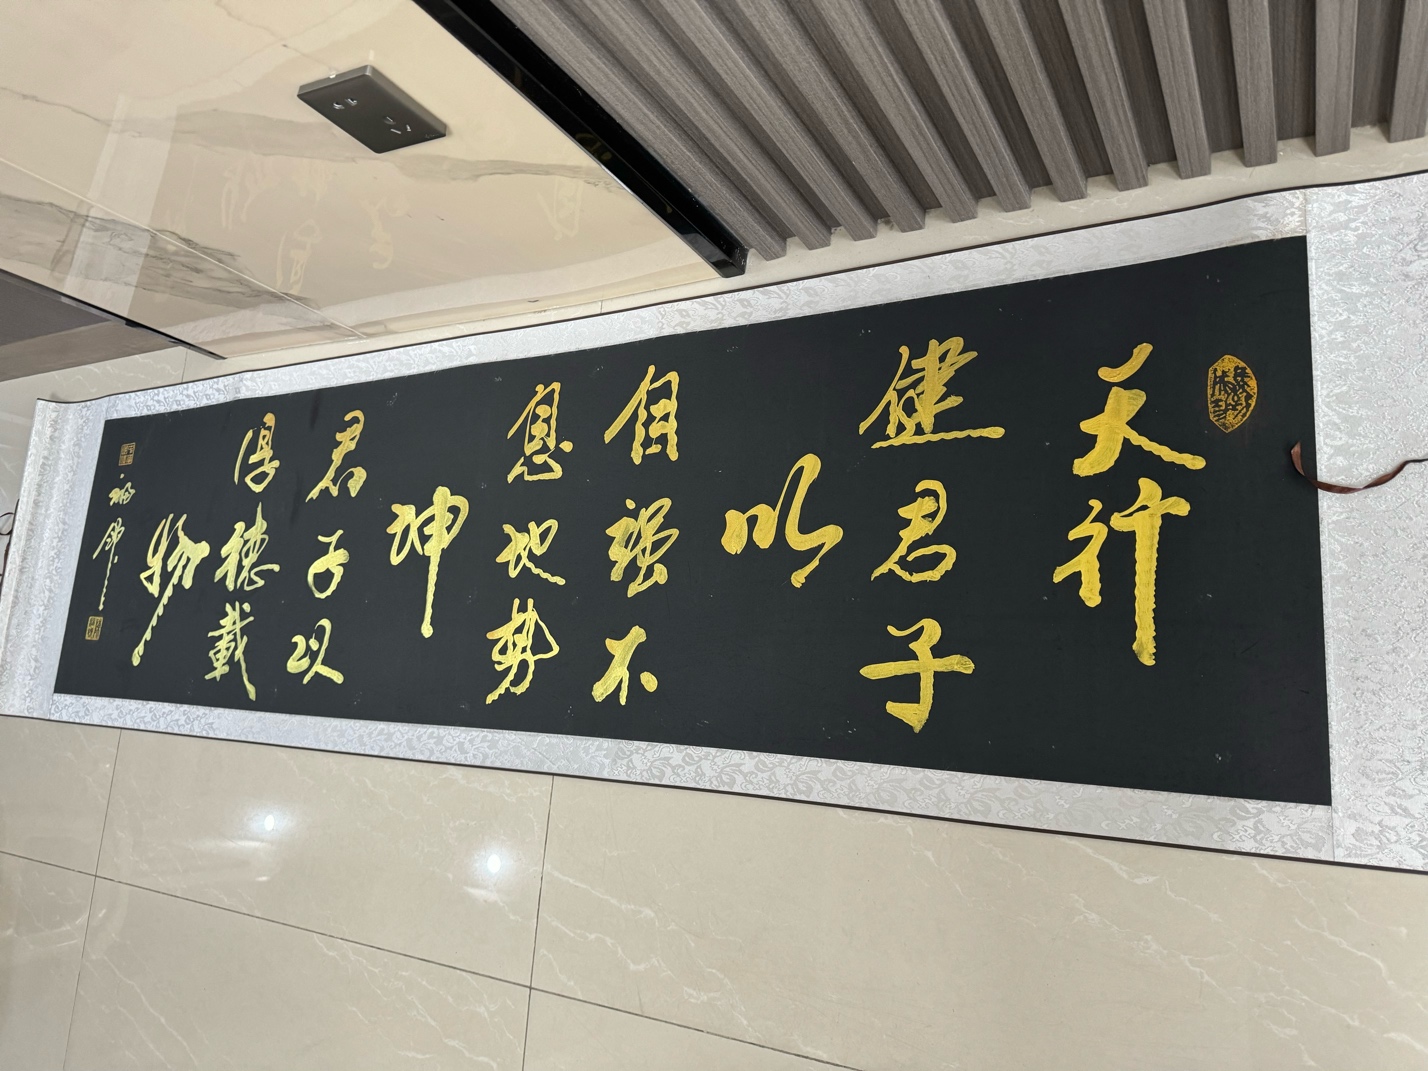 天行
健君子
以
自强不
息地势
坤
君子以
厚德載
物